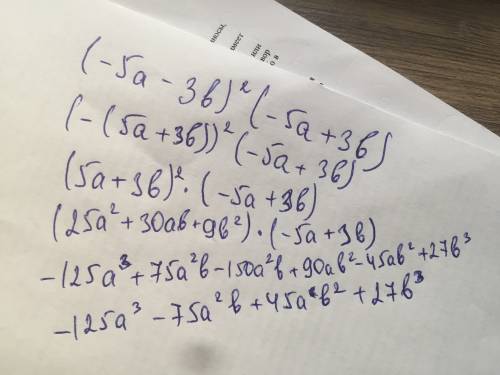 носы,
меет
или
вор
о в
(-5a - 3b)² (-5a + 3b)
(-(5a+3b))² (-5a + 3b)
(5a+3b)² · (-5a + 3b)
(25a² + 30ab + 9b²) · (-5a + 3b)
-125a³ + 75a²b - 150a²b + 90ab² - 45ab² + 27b³
-125a³ - 75a²b + 45ab² + 27b³